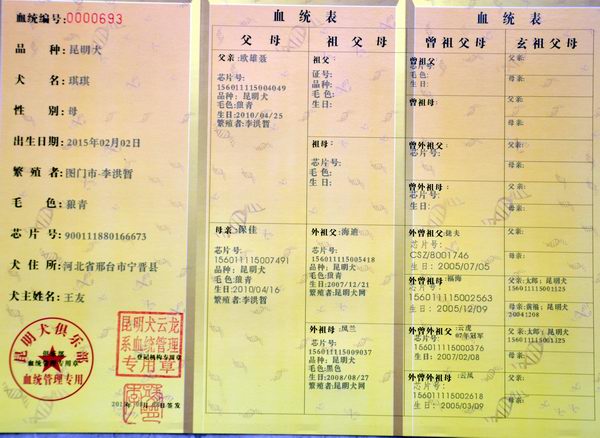 血统编号:0000693
品种:昆明犬
犬名:琪琪
性别:母
出生日期:2015年02月02日
繁殖者:图门市-李洪晢
毛色:狼青
芯片号:900111880166673
犬住所:河北省邢台市宁晋县
犬主姓名:王友
昆明犬俱乐部
血统管理专用章
血统管理专用
昆明犬云龙
系血统管理
登记机构专用章
专用章
血统表
父母 祖父母
父亲:欧雄聂
芯片号:
156011115004049
品种:昆明犬
毛色:狼青
生日:2010/04/25
繁殖者:李洪晢
祖父:
证号:
品种:
毛色:
生日:
祖母:
芯片号:
毛色:
生日:
母亲:保佳
芯片号:
156011115007491
品种:昆明犬
毛色:狼青
生日:2010/04/16
繁殖者:李洪晢
外祖父:海迪
芯片号:
156011115005418
品种:昆明犬
毛色:狼青
生日:2007/12/21
繁殖者:昆明犬网
外祖母:凤兰
芯片号:
156011115009037
品种:昆明犬
毛色:黑色
生日:2008/08/27
繁殖者:昆明犬网
血统表
曾祖父母 玄祖父母
曾祖父:
芯片号:
毛色:
生日:
曾祖母:
曾外祖父:
芯片号:
曾外祖母:
芯片号:
生日:
外曾祖父:
芯片号:
CSZ/B001746
生日:2005/07/05
外曾祖母:福海
芯片号:
156011115002563
生日:2005/12/09
外曾外祖父:云虎
芯片号: 07年冠军
156011115000376
生日:2007/02/08
外曾外祖母:云凤
芯片号:
156011115002618
生日:2005/03/09
父亲:
母亲:
父亲:
母亲:
父亲:
母亲:
父亲:
母亲:
父亲:
母亲:
父亲:太郎;昆明犬
156011115001125
母亲:黄福;昆明犬
20041208
父亲:太郎;昆明犬
156011115001125
母亲: